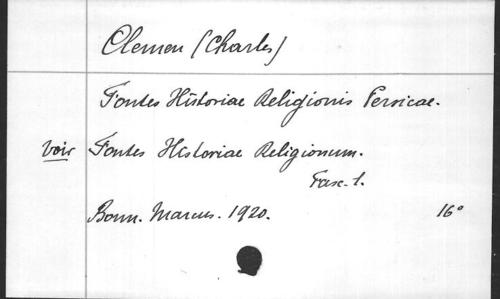 Clemen (Charles)
Fontes Historiae Religionis Persicae.
voir Fontes Historiae Religionum.
Fasc. 1.
Bonn. Marcus. 1920. 16°